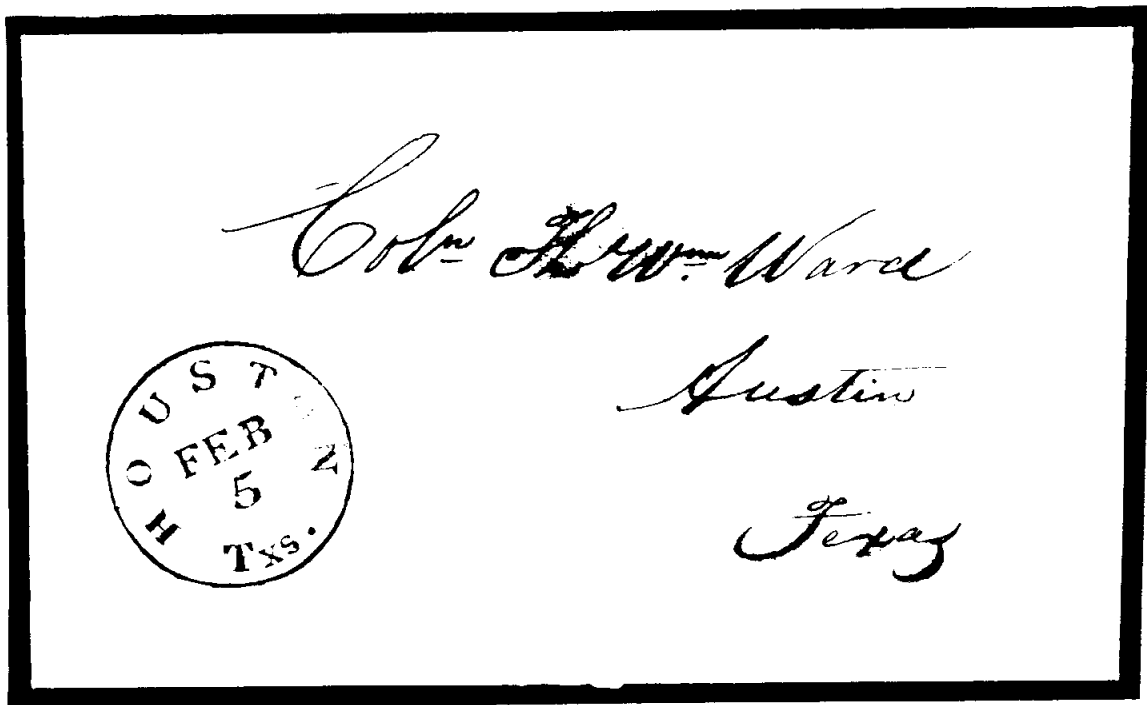 Coln Th Wm Ward
Austin
Texas
HOUSTON
FEB
5
Txs.